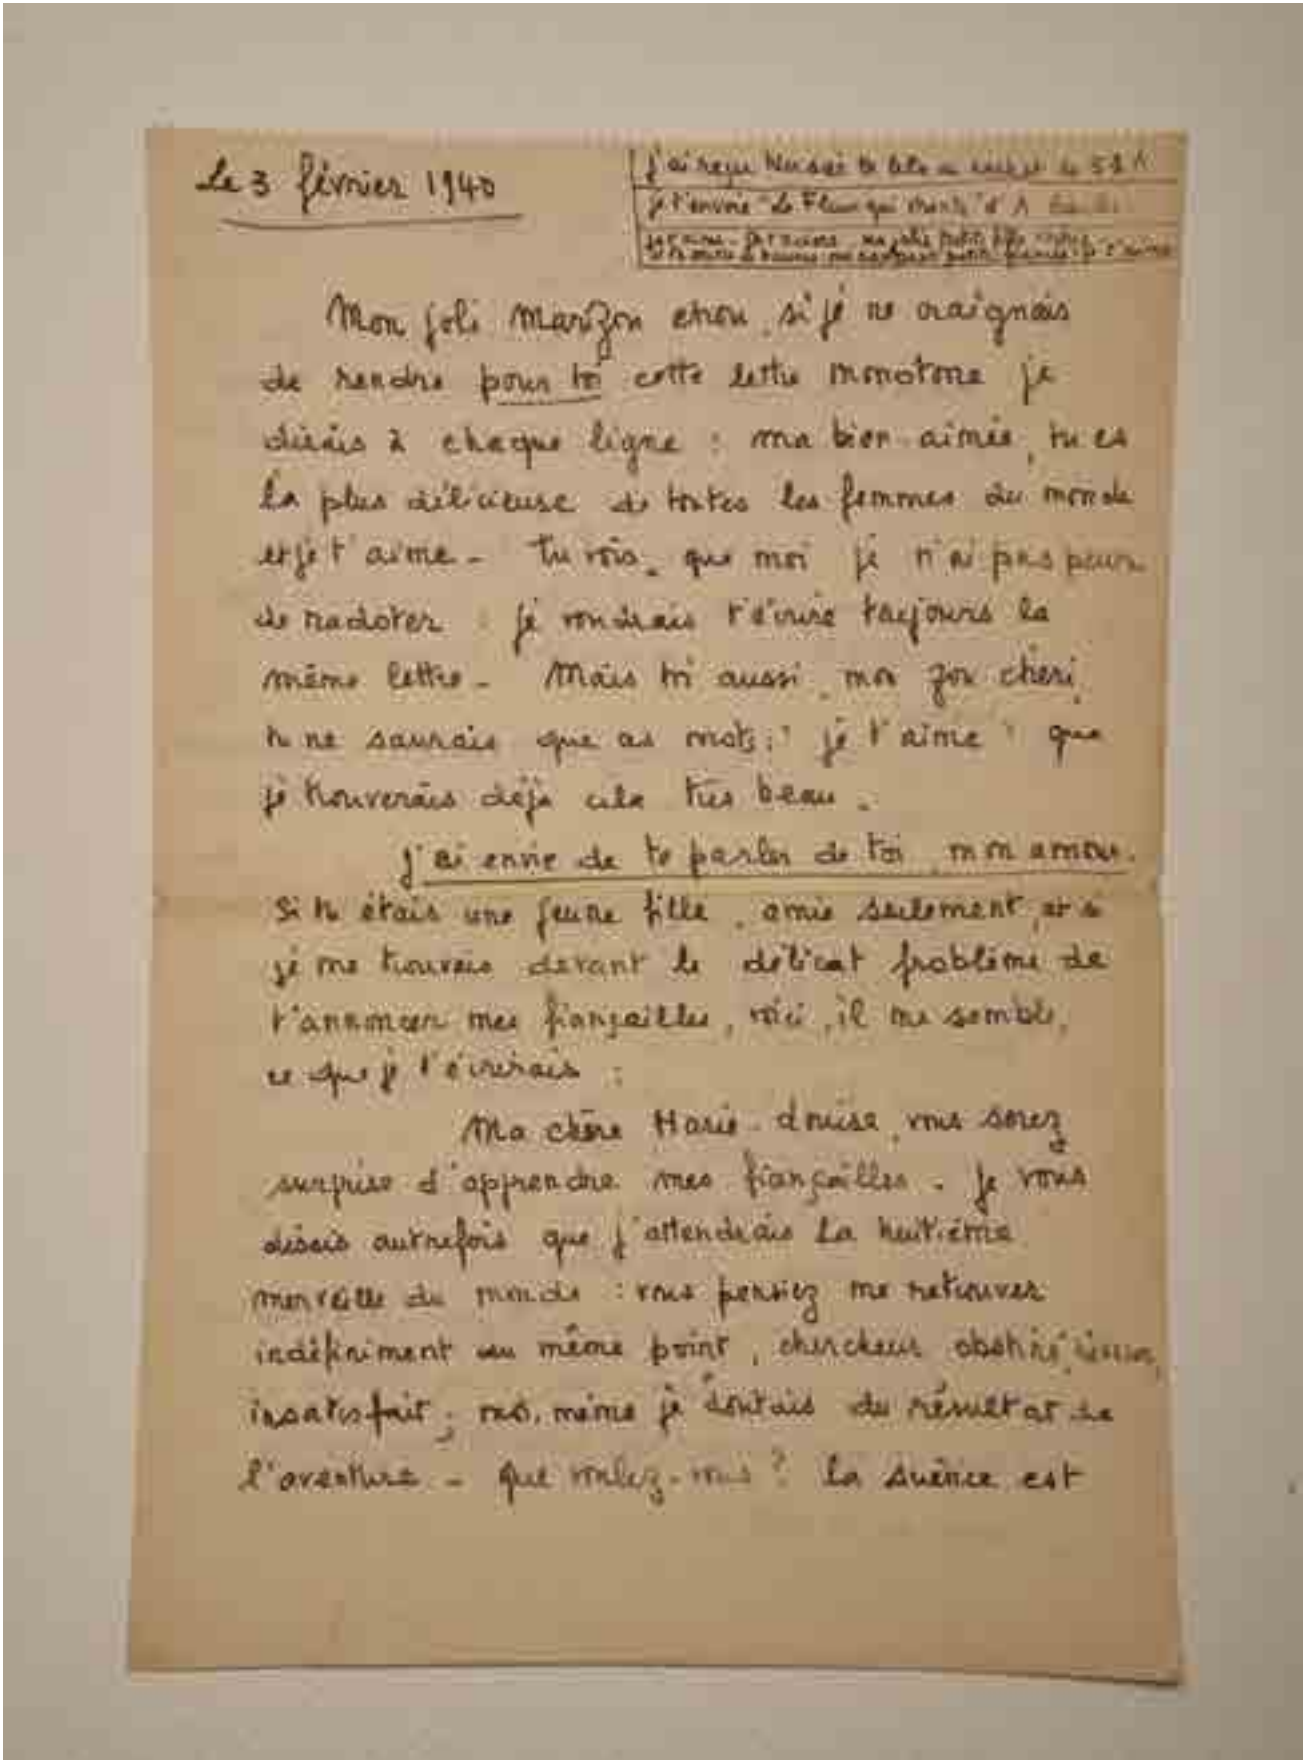 Le 3 février 1940
j'ai reçu
je t'envoie "La Fleur qui chante" d'A
je t'aime
Mon joli Marizon chou, si je ne craignais
de rendre pour toi cette lettre monotone je
dirais à chaque ligne : ma bien-aimée, tu es
la plus délicieuse de toutes les femmes du monde
et je t'aime - Tu vois, que moi je n'ai pas peur
de radoter : je voudrais t'écrire toujours la
même lettre - Mais toi aussi, mon zon chéri,
tu ne saurais que ces mots : "je t'aime" que
je trouverais déjà cela très beau.
J'ai envie de te parler de toi, mon amour.
Si tu étais une jeune fille, amie seulement, et si
je me trouvais devant le délicat problème de
t'annoncer mes fiançailles, voici, il me semble,
ce que je t'écrirais :
Ma chère Marie-Louise, vous serez
surprise d'apprendre mes fiançailles. Je vous
disais autrefois que j'attendrais la huitième
merveille du monde : vous pensiez me retrouver
indéfiniment au même point, chercheur obstiné,
insatisfait ; moi-même je doutais du résultat de
l'aventure - Que voulez-vous ? La science est